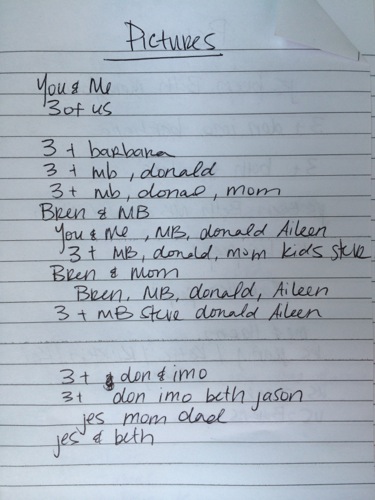 Pictures
You & Me
3 of us
3 + barbara
3 + mb, donald
3 + mb, donal, mom
Bren & MB
You & Me, MB, donald Aileen
3 + MB, donald, mom kids steve
Bren & mom
Bren, MB, donald, Aileen
3 + MB Steve donald Aileen
3 + don & imo
3 + don imo beth jason
jes mom dad
jes & beth